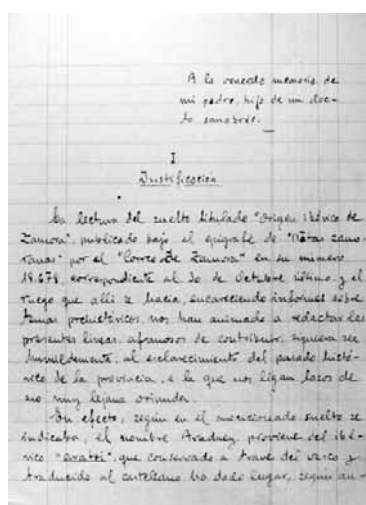 A la venerada memoria de
mi padre, hijo de un doc-
to sanabrés.
I
Justificación
La lectura del suelto titulado "Origen ibérico de
Zamora", publicado bajo el epígrafe de "Notas zamo-
ranas" por el "Correo de Zamora" en su número
18.678, correspondiente al 30 de Octubre último, y el
ruego que allí se hacía, encareciendo informes sobre
temas prehistóricos, nos han animado a redactar las
presentes líneas, afanosos de contribuir, siquiera sea
humildemente, al esclarecimiento del pasado histó-
rico de la provincia, a la que nos ligan lazos de
no muy lejana oriundez.
En efecto, según en el mencionado suelto se
indicaba, el nombre Araduey, proviene del ibé-
rico "aratti", que conservado a través del vasco y
traducido al castellano ha dado lugar, según au-